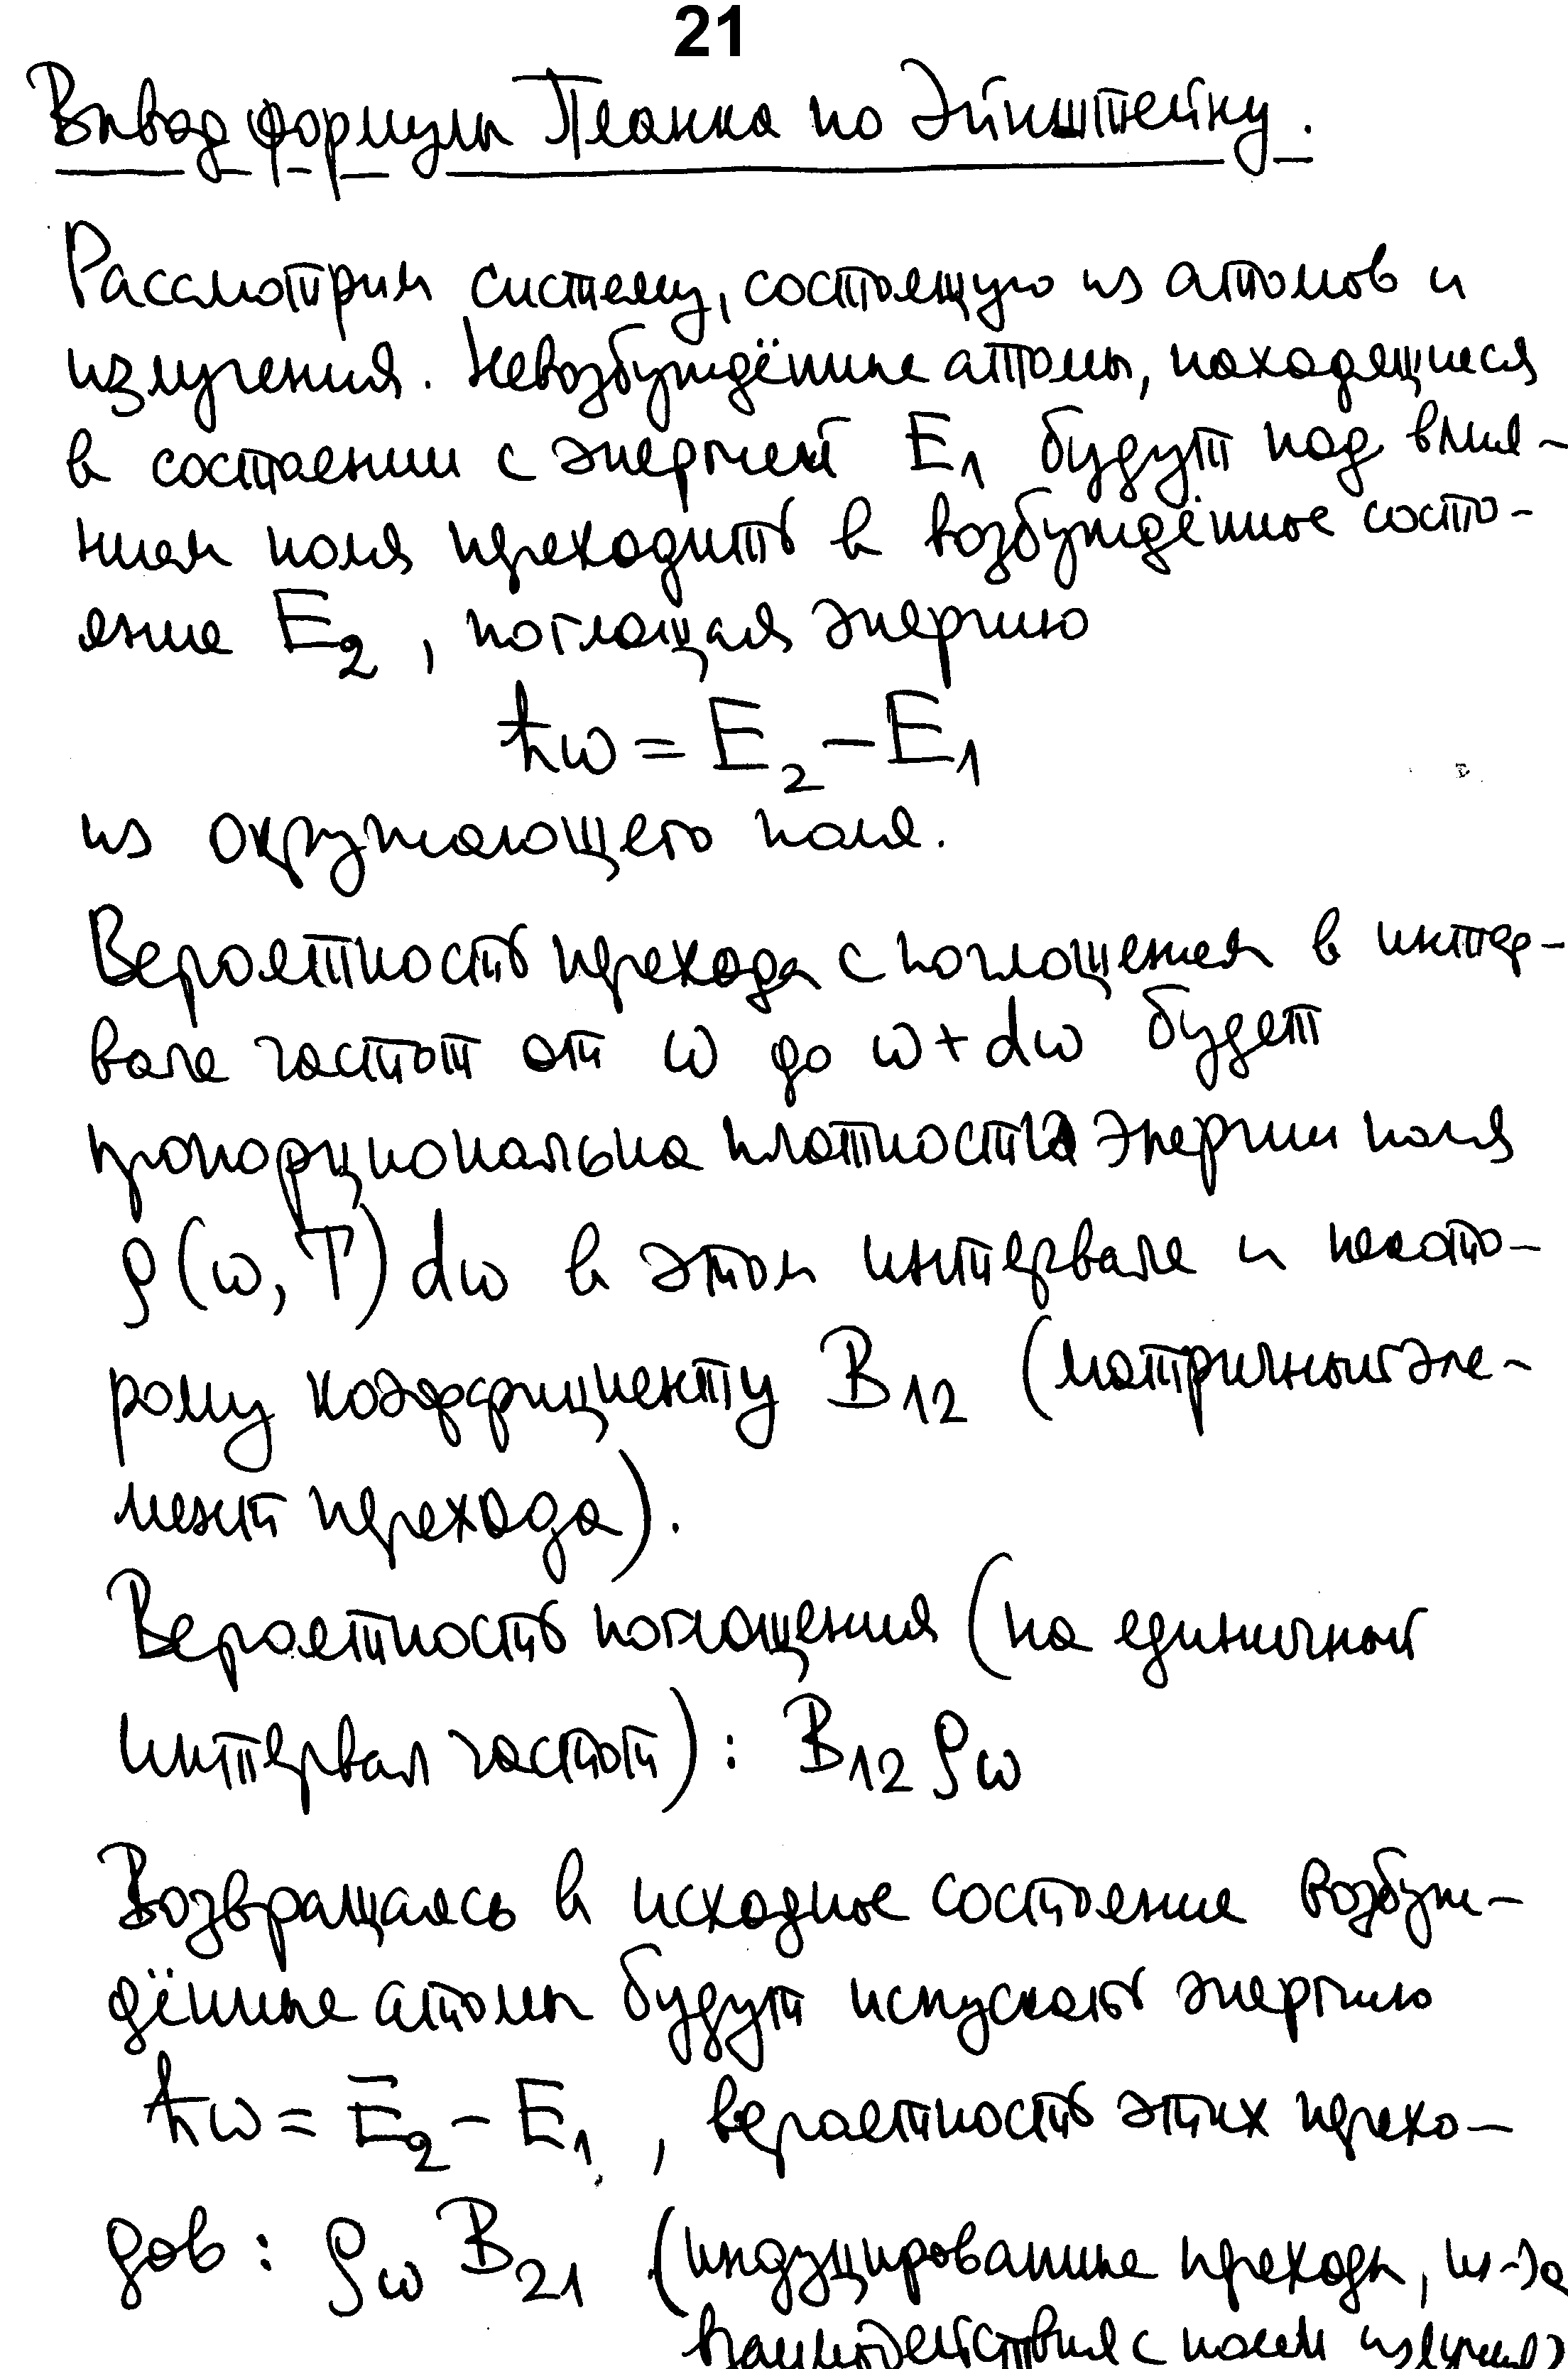 21
Вывод формулы Планка по Эйнштейну.
Рассмотрим систему, состоящую из атомов и
излучения. Невозбуждённые атомы, находящиеся
в состоянии с энергией E₁ будут под влия-
нием поля переходить в возбуждённые состо-
яние E₂, поглощая энергию
ℏω = E₂ − E₁
из окружающего поля.
Вероятность перехода с поглощением в интер-
вале частот от ω до ω + dω будет
пропорциональна плотности энергии поля
ρ(ω, T) dω в этом интервале и некото-
рому коэффициенту B₁₂ (матричный эле-
мент перехода).
Вероятность поглощения (на единичный
интервал частот): B₁₂ρω
Возвращаясь в исходное состояние возбуж-
дённые атомы будут испускать энергию
ℏω = E₂ − E₁, вероятность этих перехо-
дов: ρω B₂₁ (индуцированные переходы, из-за
взаимодействия с полем